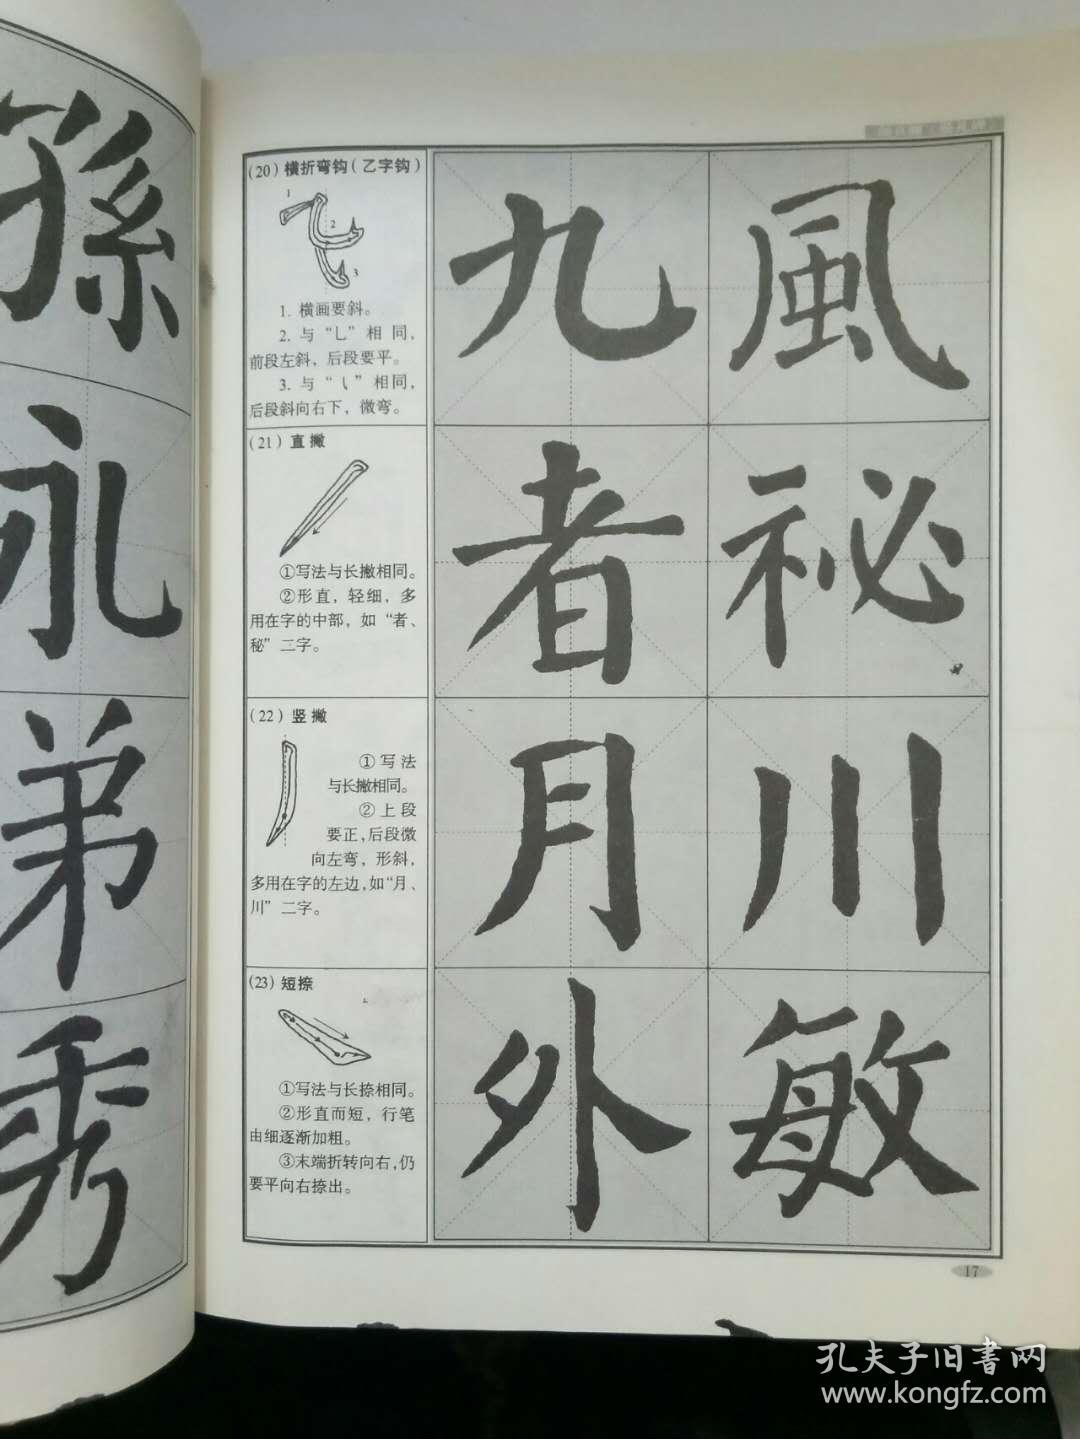 孫
永
弟
秀
(20) 横折弯钩(乙字钩)
1
2
3
1. 横画要斜。
2. 与“乚”相同,
前段左斜, 后段要平。
3. 与“㇂”相同,
后段斜向右下, 微弯。
九 風
(21) 直撇
①写法与长撇相同。
②形直, 轻细, 多
用在字的中部, 如“者、
秘”二字。
者 祕
(22) 竖撇
①写法
与长撇相同。
②上段
要正,后段微
向左弯, 形斜,
多用在字的左边,如“月、
川”二字。
月 川
(23) 短捺
①写法与长捺相同。
②形直而短, 行笔
由细逐渐加粗。
③末端折转向右,仍
要平向右捺出。
外 敏
17
孔夫子旧書网
www.kongfz.com